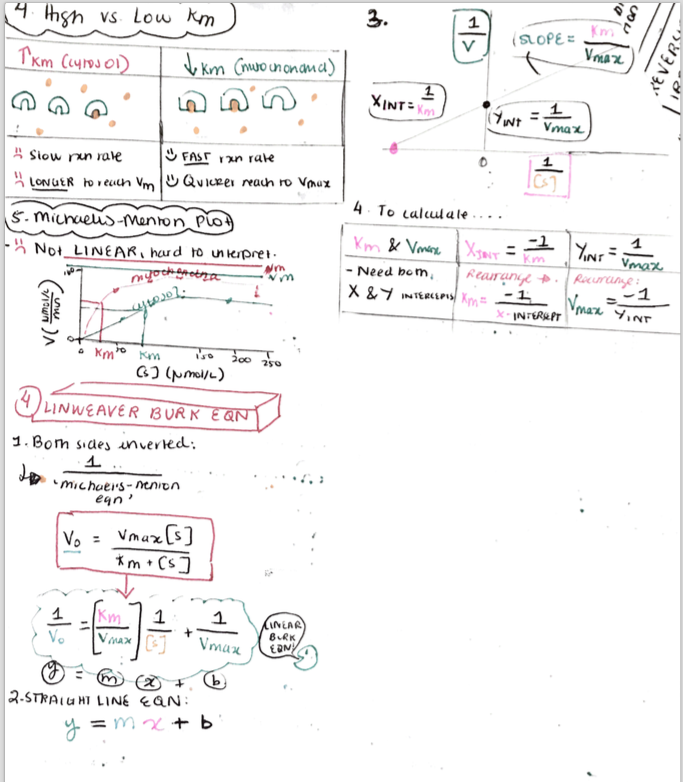 4. High vs. Low Km
↑Km (cytosol)
↓Km (mitochondria)
Slow rxn rate
LONGER to reach Vm
FAST rxn rate
Quicker reach to Vmax
5. Michaelis-Menton Plot
- Not LINEAR, hard to interpret.
Vm
Vm
mitochondria
cytosol:
V (μmol/L / min)
0
Km
Km
150
200
250
[S] (μmol/L)
4 LINWEAVER BURK EQN
1. Both sides inverted:
1 / 'michaels-menion eqn'
V₀ = Vmax[S] / Km + [S]
1/V₀ = [Km/Vmax] 1/[S] + 1/Vmax
LINEAR
BURK
EQN!
y = m x + b
2-STRAIGHT LINE EQN:
y = m x + b
3.
1/V
SLOPE = Km/Vmax
XINT = 1/Km
YINT = 1/Vmax
0
1/[S]
4. To calculate....
Km & Vmax
- Need both,
X & Y INTERCEPTS
XINT = -1/Km
Rearrange
Km = -1/X-INTERCEPT
YINT = 1/Vmax
Rearrange:
Vmax = -1/YINT